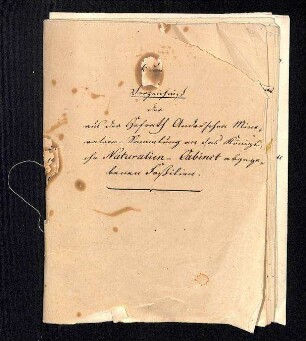 Verzeichniß
der
aus der Hofrath Anderschen Mine,
ralien-Sammlung an das Königli,
che Naturalien-Cabinet abgege,
benen Foßilien.